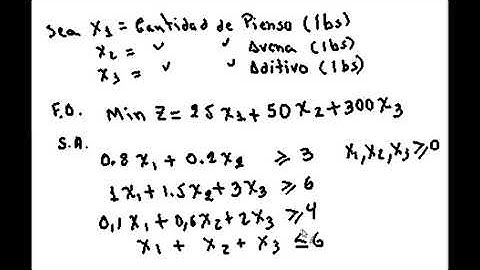 Sea X1 = Cantidad de Pienso (lbs)
X2 = " " Avena (lbs)
X3 = " " Aditivo (lbs)
F.O. Min Z = 25X1 + 50X2 + 300X3
S.A.
0.8X1 + 0.2X2 ≥ 3 X1, X2, X3 ≥ 0
1X1 + 1.5X2 + 3X3 ≥ 6
0,1X1 + 0,6X2 + 2X3 ≥ 4
X1 + X2 + X3 ≤ 6